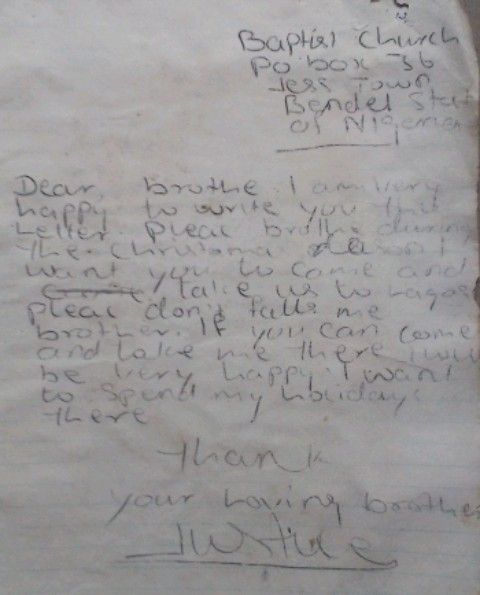 Baptist Church
Po box 36
Jess Town
Bendel Stat
of Nigeria
Dear, brothe. I am very
happy to write you this
Letter. Pleac brothe during
the Christma season I
want you to came and
take us to Lagos
pleac don't falls me
brother. If you can come
and take me there I will
be very happy. I want
to spend my holidays
there
Thank
your Loving brother
Justice